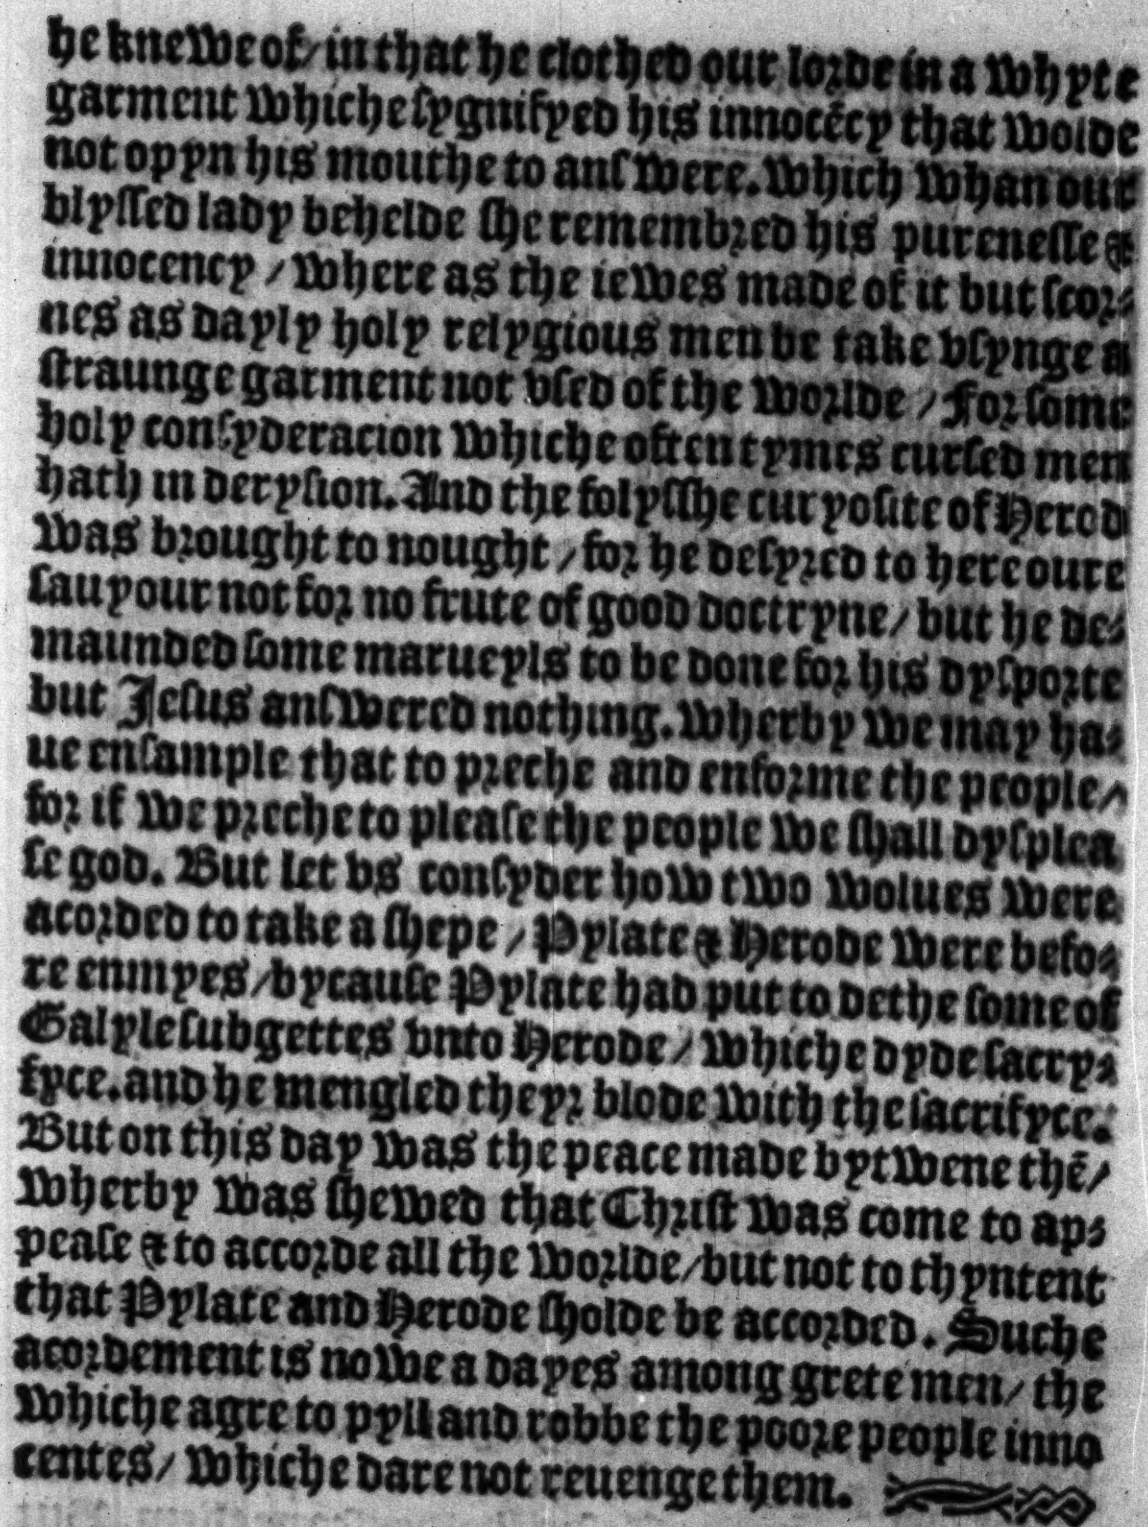 he knewe of / in that he clothed our lorde in a whyte
garment whiche sygnifyed his innocēcy that wolde
not opyn his mouthe to answere. which whan our
blyssed lady behelde she remembred his purenesse &
innocency / where as the iewes made of it but scor⸗
nes as dayly holy relygious men be take vsynge a
straunge garment not vsed of the worlde / For some
holy consyderacion whiche oftentymes cursed men
hath in derysion. And the folysshe curyosite of Herod
was brought to nought / for he desyred to here oure
sauyour not for no frute of good doctryne / but he de⸗
maunded some marueyls to be done for his dysporte
but Jesus answered nothing. wherby we may ha⸗
ue ensample that to preche and enforme the people /
for if we preche to please the people we shall dysplea
se god. But let vs consyder how two wolues were
acorded to take a shepe / Pylate & Herode were befo⸗
re enmyes / bycause Pylate had put to dethe some of
Galyle subgettes vnto Herode / whiche dyde sacry⸗
fyce. and he mengled theyr blode with the sacrifyce.
But on this day was the peace made bytwene thē /
wherby was shewed that Christ was come to ap⸗
pease & to accorde all the worlde / but not to thyntent
that Pylate and Herode sholde be accorded. Suche
acordement is nowe a dayes among grete men / the
whiche agre to pyll and robbe the poore people inno
centes / whiche dare not reuenge them.